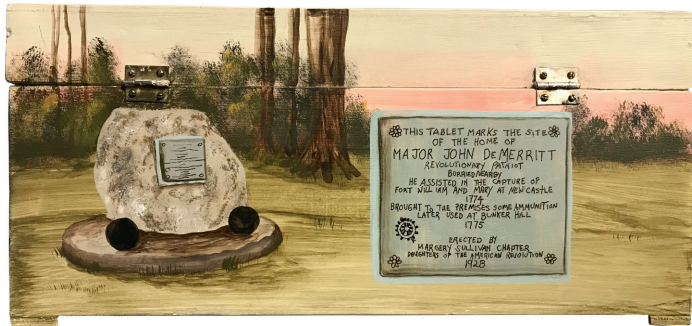 THIS TABLET MARKS THE SITE
OF THE HOME OF
MAJOR JOHN DEMERRITT
REVOLUTIONARY PATRIOT
BORRIED NEARBY
HE ASSISTED IN THE CAPTURE OF
FORT WILLIAM AND MARY AT NEW CASTLE
1774
BROUGHT TO THE PREMISES SOME AMMUNITION
LATER USED AT BUNKER HILL
1775
ERECTED BY
MARGERY SULLIVAN CHAPTER
DAUGHTERS OF THE AMERICAN REVOLUTION
1928